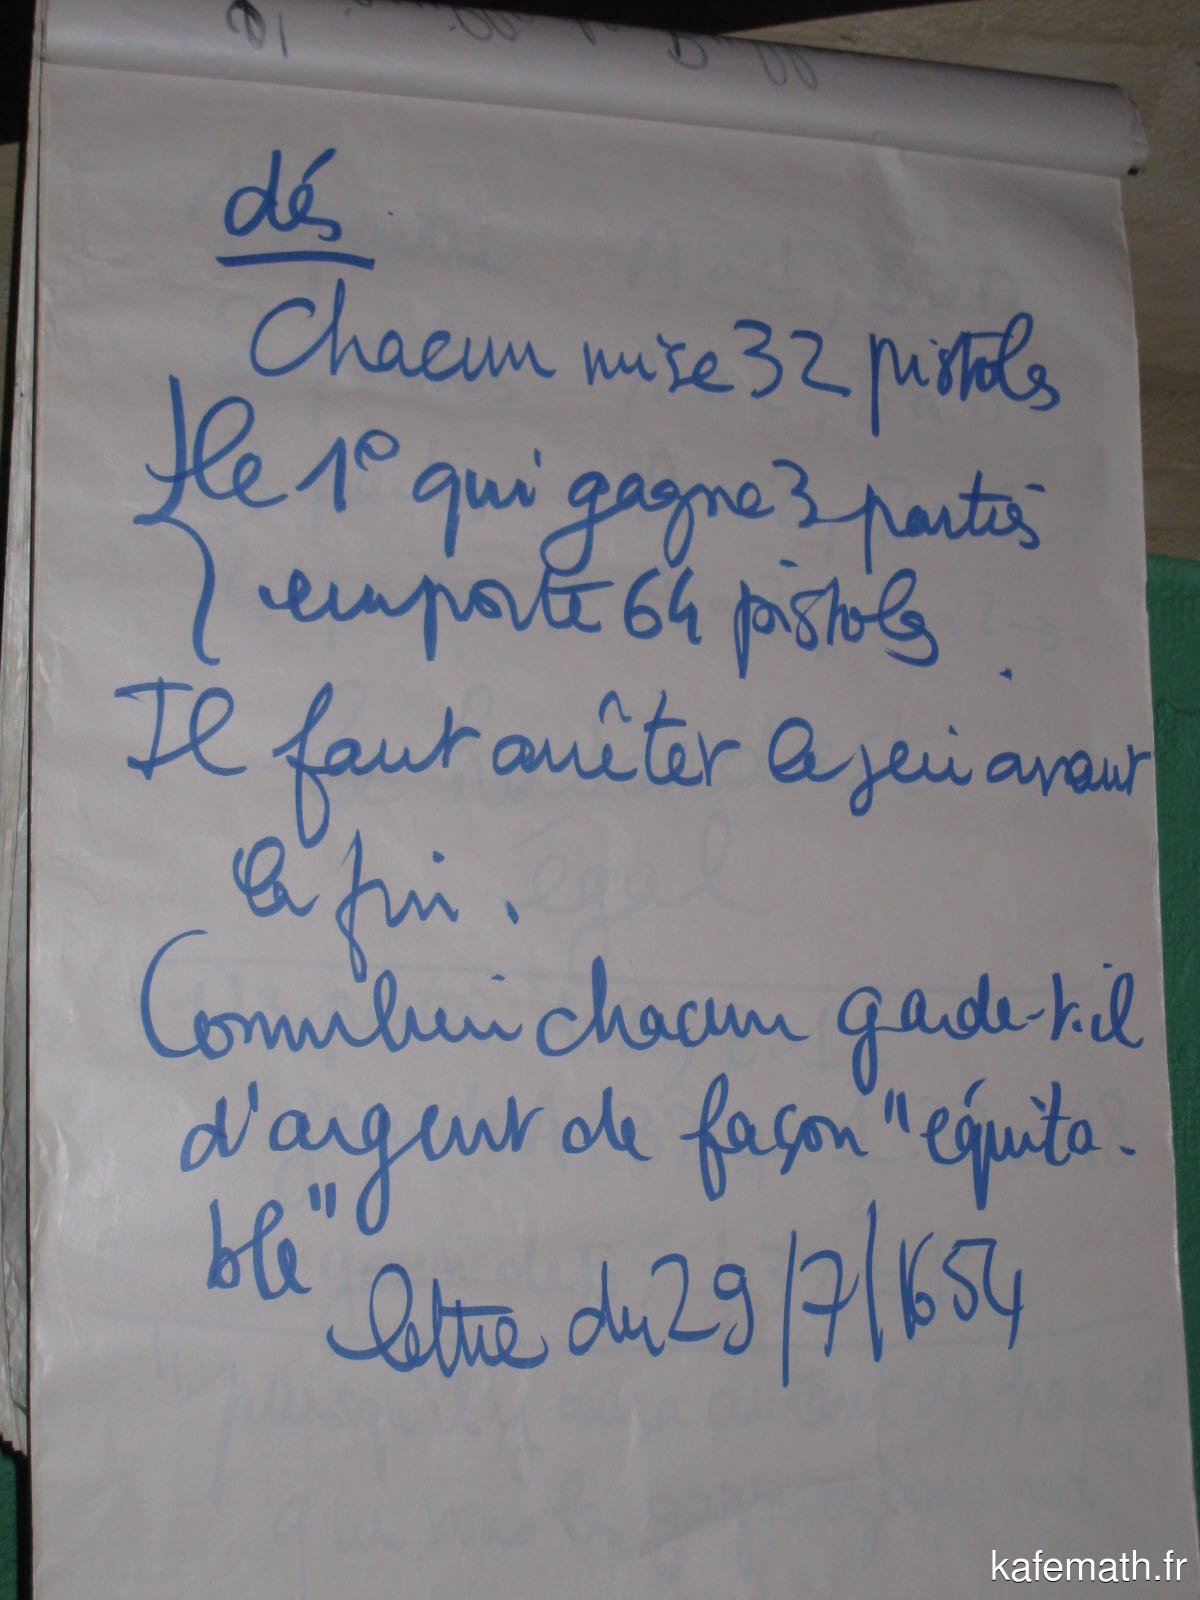 dés
Chacun mise 32 pistols
le 1e qui gagne 3 parties
emporte 64 pistols
Il faut arrêter le jeu avant
la fin.
Combien chacun garde-t-il
d'argent de façon "équita-
ble"
lettre du 29/7/1654
kafemath.fr